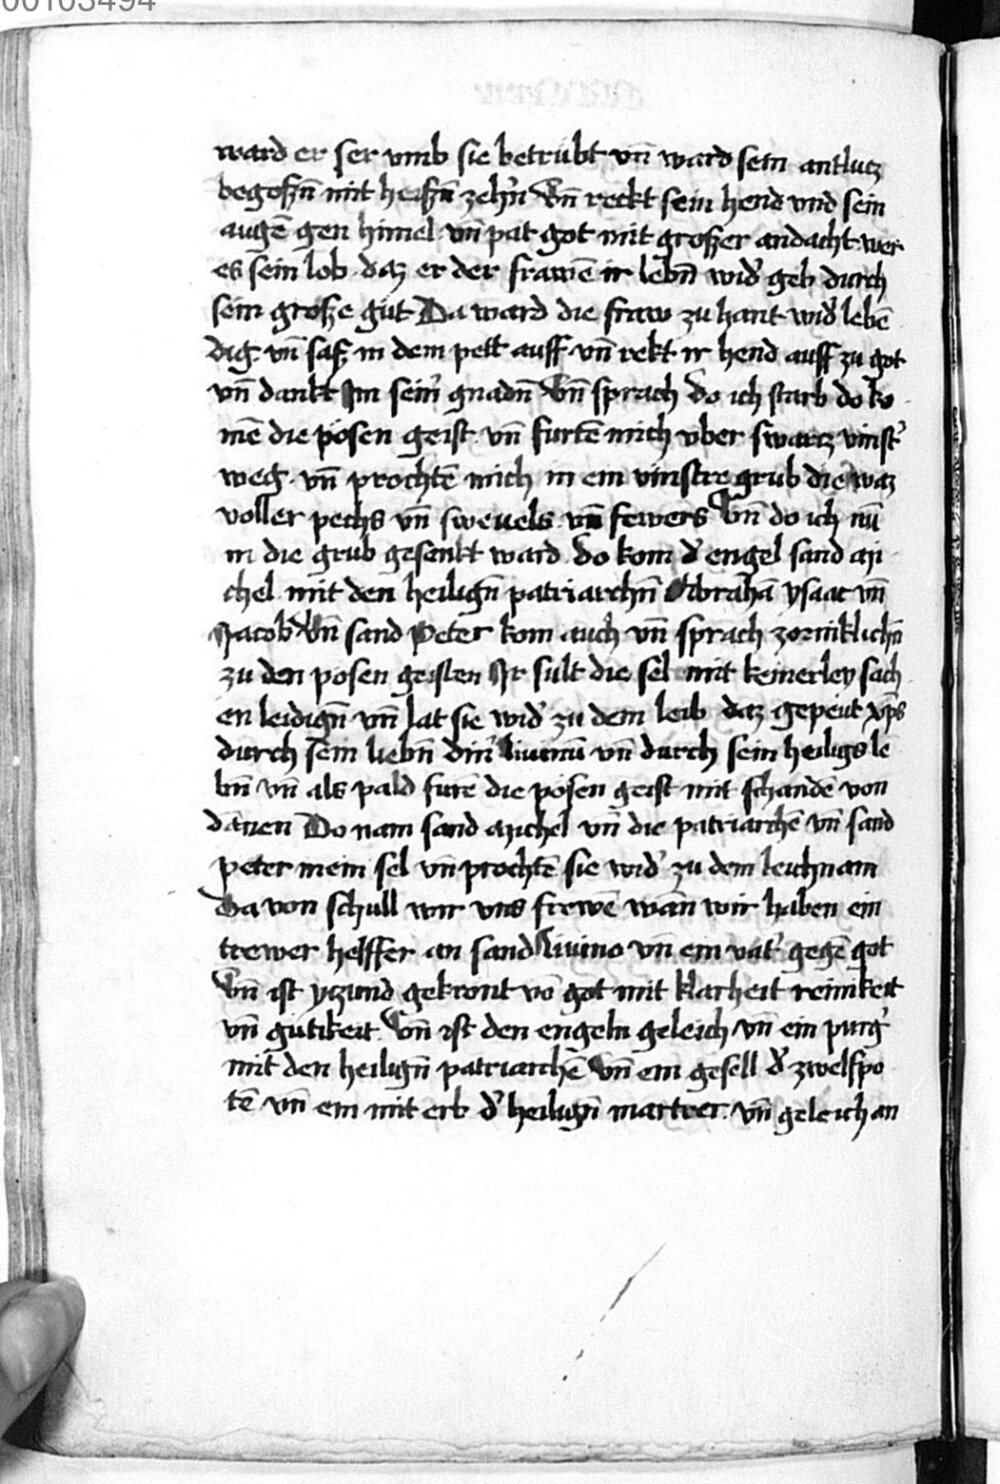 00103494
ward er ser vmb sie betrubt vn̄ ward sein antlutz
begoßn̄ mit heißn̄ zehn̄ Vn̄ reckt sein hend vnd sein
augē gen himel vn̄ pat got mit großer andacht wer
es sein lob daz er der frawē ir lebn̄ wid' geb durch
sein große gut Da ward die fraw zu hant wid' lebē
dig vn̄ saß in dem pett auff vn̄ rekt ir hend auff zu got
vn̄ dankt Im sein' gnadn̄ Vn̄ sprach do ich starb do ko
mē die posen geist vn̄ furtē mich vber swartz vinst'
weg vn̄ prochtē mich in ein vinstre grub die waz
voller pechs vn̄ sweuels vn̄ fewers Vn̄ do ich nū
in die grub gesenkt ward do kom d' engel sand Mi
chel mit den heilign̄ patriarchn̄ Abrahā ysaac vn̄
Jacob Vn̄ sand Peter kom auch vn̄ sprach zorniklichn̄
zu den posen geisten Ir sult die sel mit keinerley sach
en leidign̄ vn̄ lat sie wid' zu dem leib daz gepeut xp̄s
durch sein liebn̄ din' liuinū vn̄ durch sein heiligs le
bn̄ vn̄ als pald furē die posen geist mit schandē von
dannen Do nam sand Michel vn̄ die patriarchē vn̄ sand
peter mein sel vn̄ prochtē sie wid' zu dem leichnam
Da von schull wir vns frewē wann wir haben ein
trewer helffer an sand liuino vn̄ ein vat' gegē got
Vn̄ ist yczund gekront vō got mit klarheit reinikeit
vn̄ gutikeit Vn̄ ist den engeln geleich vn̄ ein purg'
mit den heilign̄ patriarchē Vn̄ ein gesell d' zwelfpo
tē vn̄ ein mit erb d' heilign̄ martrer vn̄ geleich an